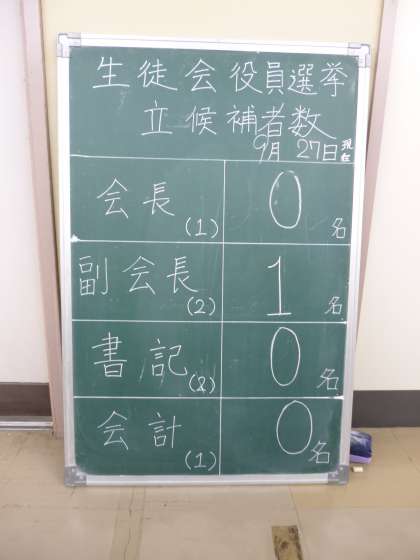 生徒会役員選挙
立候補者数
9月27日現在
会長(1) 0名
副会長(2) 1名
書記(2) 0名
会計(1) 0名